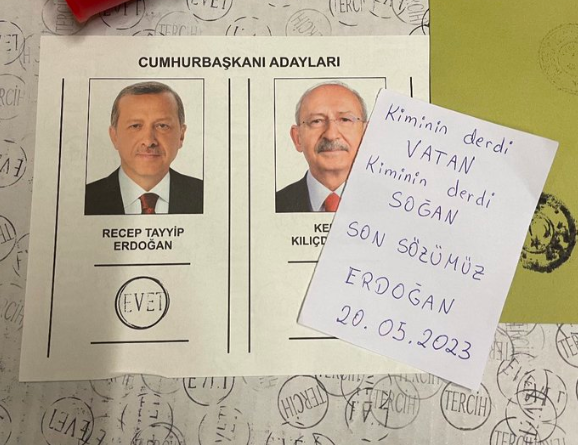 CUMHURBAŞKANI ADAYLARI
RECEP TAYYİP
ERDOĞAN
EVET
Kiminin derdi
VATAN
Kiminin derdi
SOĞAN
SON SÖZÜMÜZ
ERDOĞAN
20.05.2023
TERCİH
EVET
TERCİH
TERCİH
TERCİH